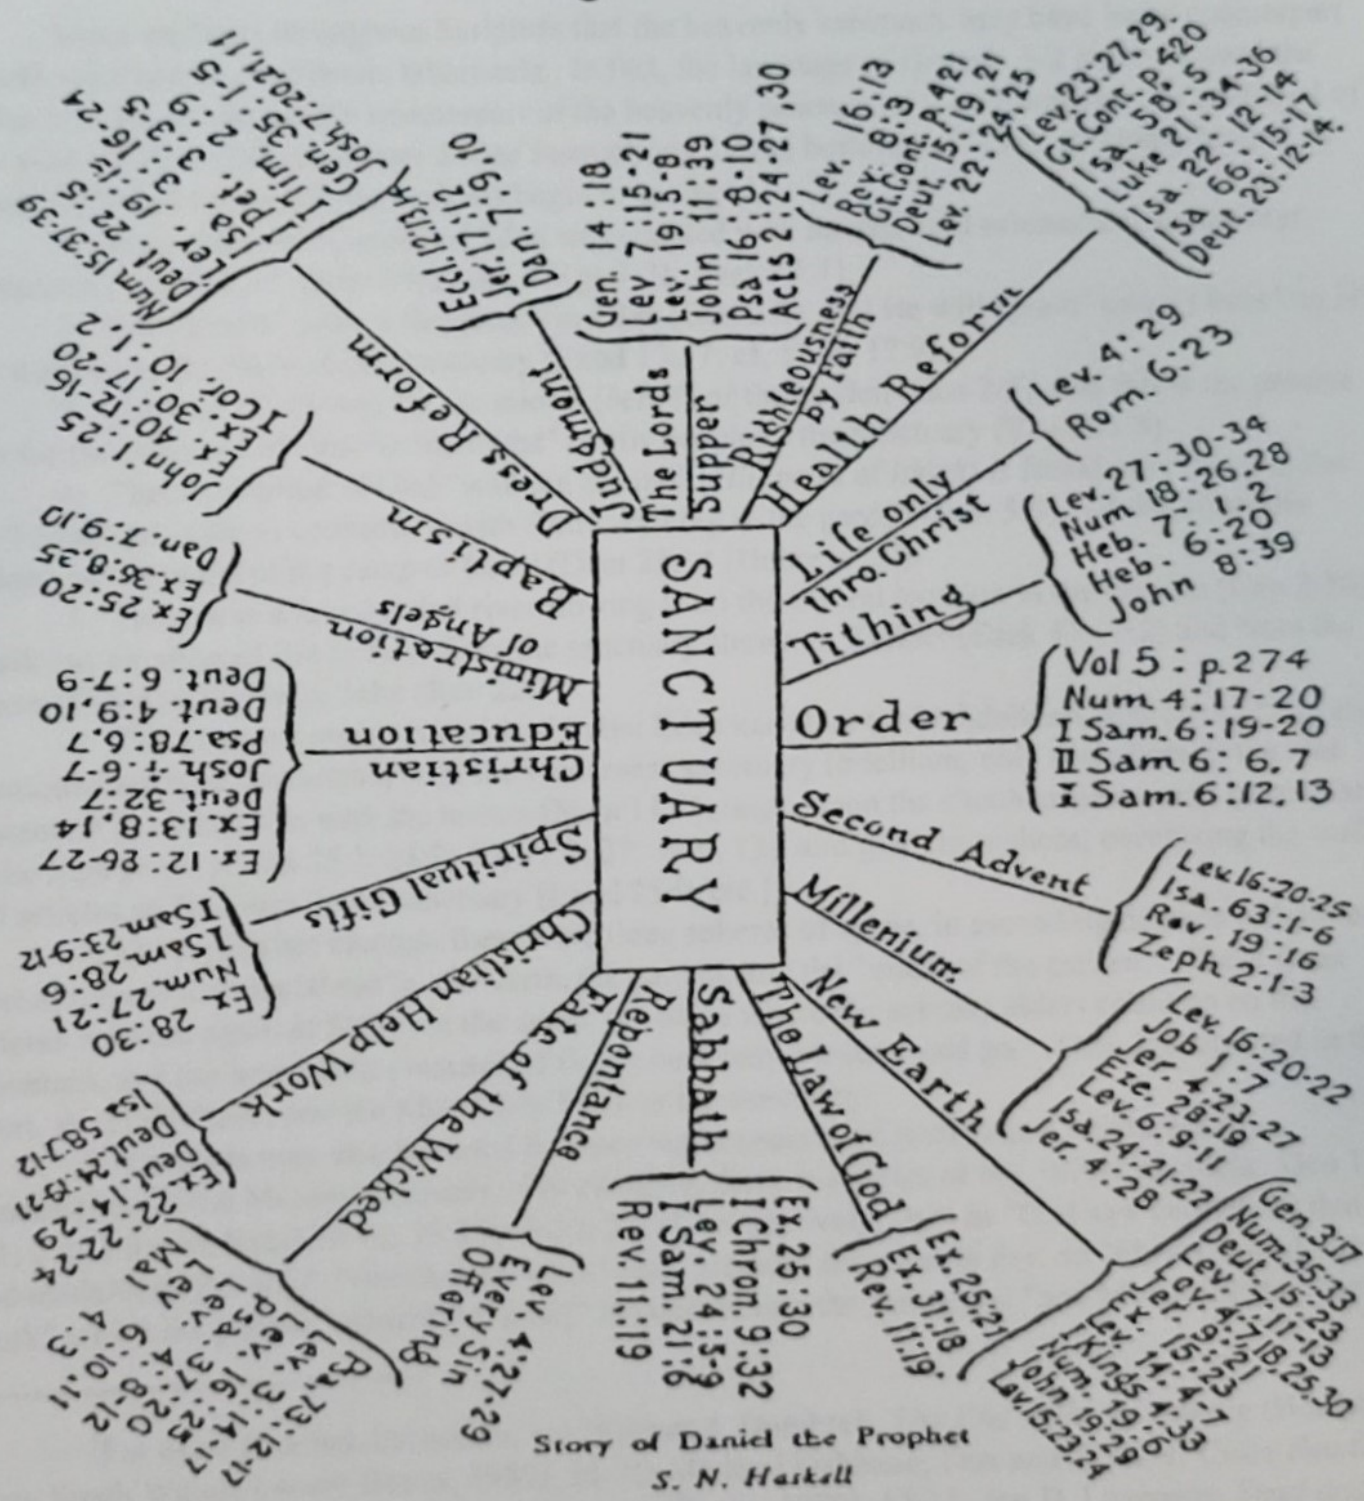 SANCTUARY
The Lords
Supper
Gen. 14:18
Lev 7:15-21
Lev. 19:5-8
John 11:39
Psa 16:8-10
Acts 2:24-27,30
Righteousness
by Faith
Lev. 16:13
Rev. 8:3
Gt.Cont. p.421
Deut. 15:19,21
Lev. 22:24,25
Health Reform
Lev. 23:27,29.
Gt. Cont. p.420
Isa. 58:5
Luke 21:34-36
Isa. 22:12-14
Isa. 66:15-17
Deut. 23:12-14.
Life only
thro. Christ
Lev. 4:29
Rom. 6:23
Tithing
Lev. 27:30-34
Num 18:26,28
Heb. 7:1,2
Heb. 6:20
John 8:39
Order
Vol 5: p.274
Num 4:17-20
I Sam. 6:19-20
II Sam 6: 6,7
I Sam. 6:12,13
Second Advent
Lev.16:20-25
Isa. 63:1-6
Rev. 19:16
Zeph 2:1-3
Millenium.
Lev. 16:20-22
Job 1:7
Jer. 4:23-27
Eze. 28:19
Lev. 6:9-11
Isa.24:21-22
Jer. 4:28
New Earth
Gen.3:17
Num.35:33
Deut. 15:23
Lev. 7:11-13
Lev. 4:7,18,25,30
Jer. 9:21
Ex. 15:23
Lev. 14:4-7
I Kings 4:33
Num. 19:6
John 19:29
Lev.15:23,24
The Law of God
Ex. 25:21
Ex. 31:18
Rev. 11:19.
Sabbath
Ex. 25:30
I Chron. 9:32
Lev. 24:5-9
I Sam. 21:6
Rev. 11:19
Repentance
Lev. 4:27-29
Every Sin
Offering
Fate of the Wicked
Psa. 73:12-17
Lev. 3:14-17
Lev. 4:8-12
Lev. 6:10,11
Mal 4:3
Christian Help Work
Ex. 22:22-24
Deut. 14:29
Deut.24:19-21
Isa 58:7-12
Spiritual Gifts
Ex. 28:30
Num. 27:21
I Sam. 28:6
I Sam. 23:9-12
Christian
Education
Ex. 12:26-27
Ex. 13:8,14
Deut. 32:7
Josh. 4:6-7
Psa. 78:6,7
Deut. 4:9,10
Deut 6:7-9
Ministration
of Angels
Ex 25:20
Ex. 36:8,35
Dan. 7:9,10
Baptism
John 1:25
Ex. 40:12-16
Ex. 30:17-20
I Cor. 10:1,2
Dress Reform
Num 15:37-39
Deut. 22:5
Lev. 19:19
Isa. 3:16-24
I pet. 3:3-5
I Tim. 2:9
Gen. 35:1-5
Josh. 7:20,21,11
Judgment
Eccl. 12:13,14
Jer. 17:12
Dan. 7:9,10
Story of Daniel the Prophet
S. N. Haskell